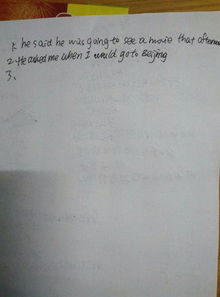 1. he said he was going to see a movie that afternoon
2. He asked me when I would go to Beijing
3.